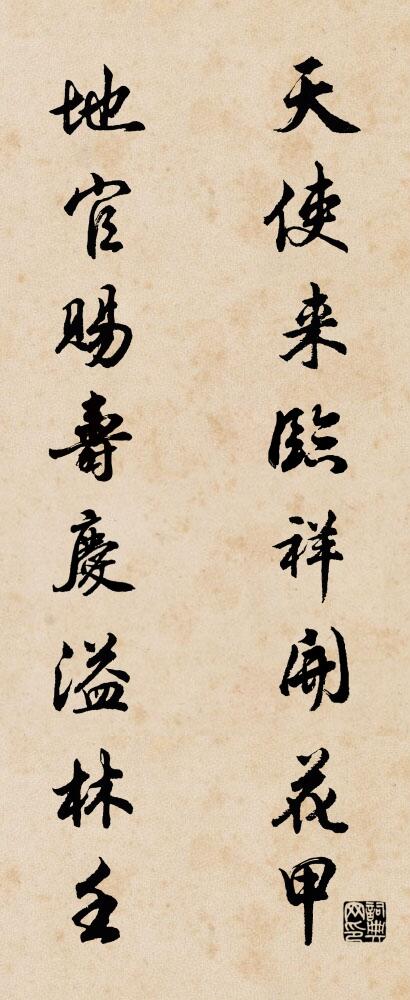 天使来臨祥開花甲
地官賜壽慶溢林壬
詞典网印